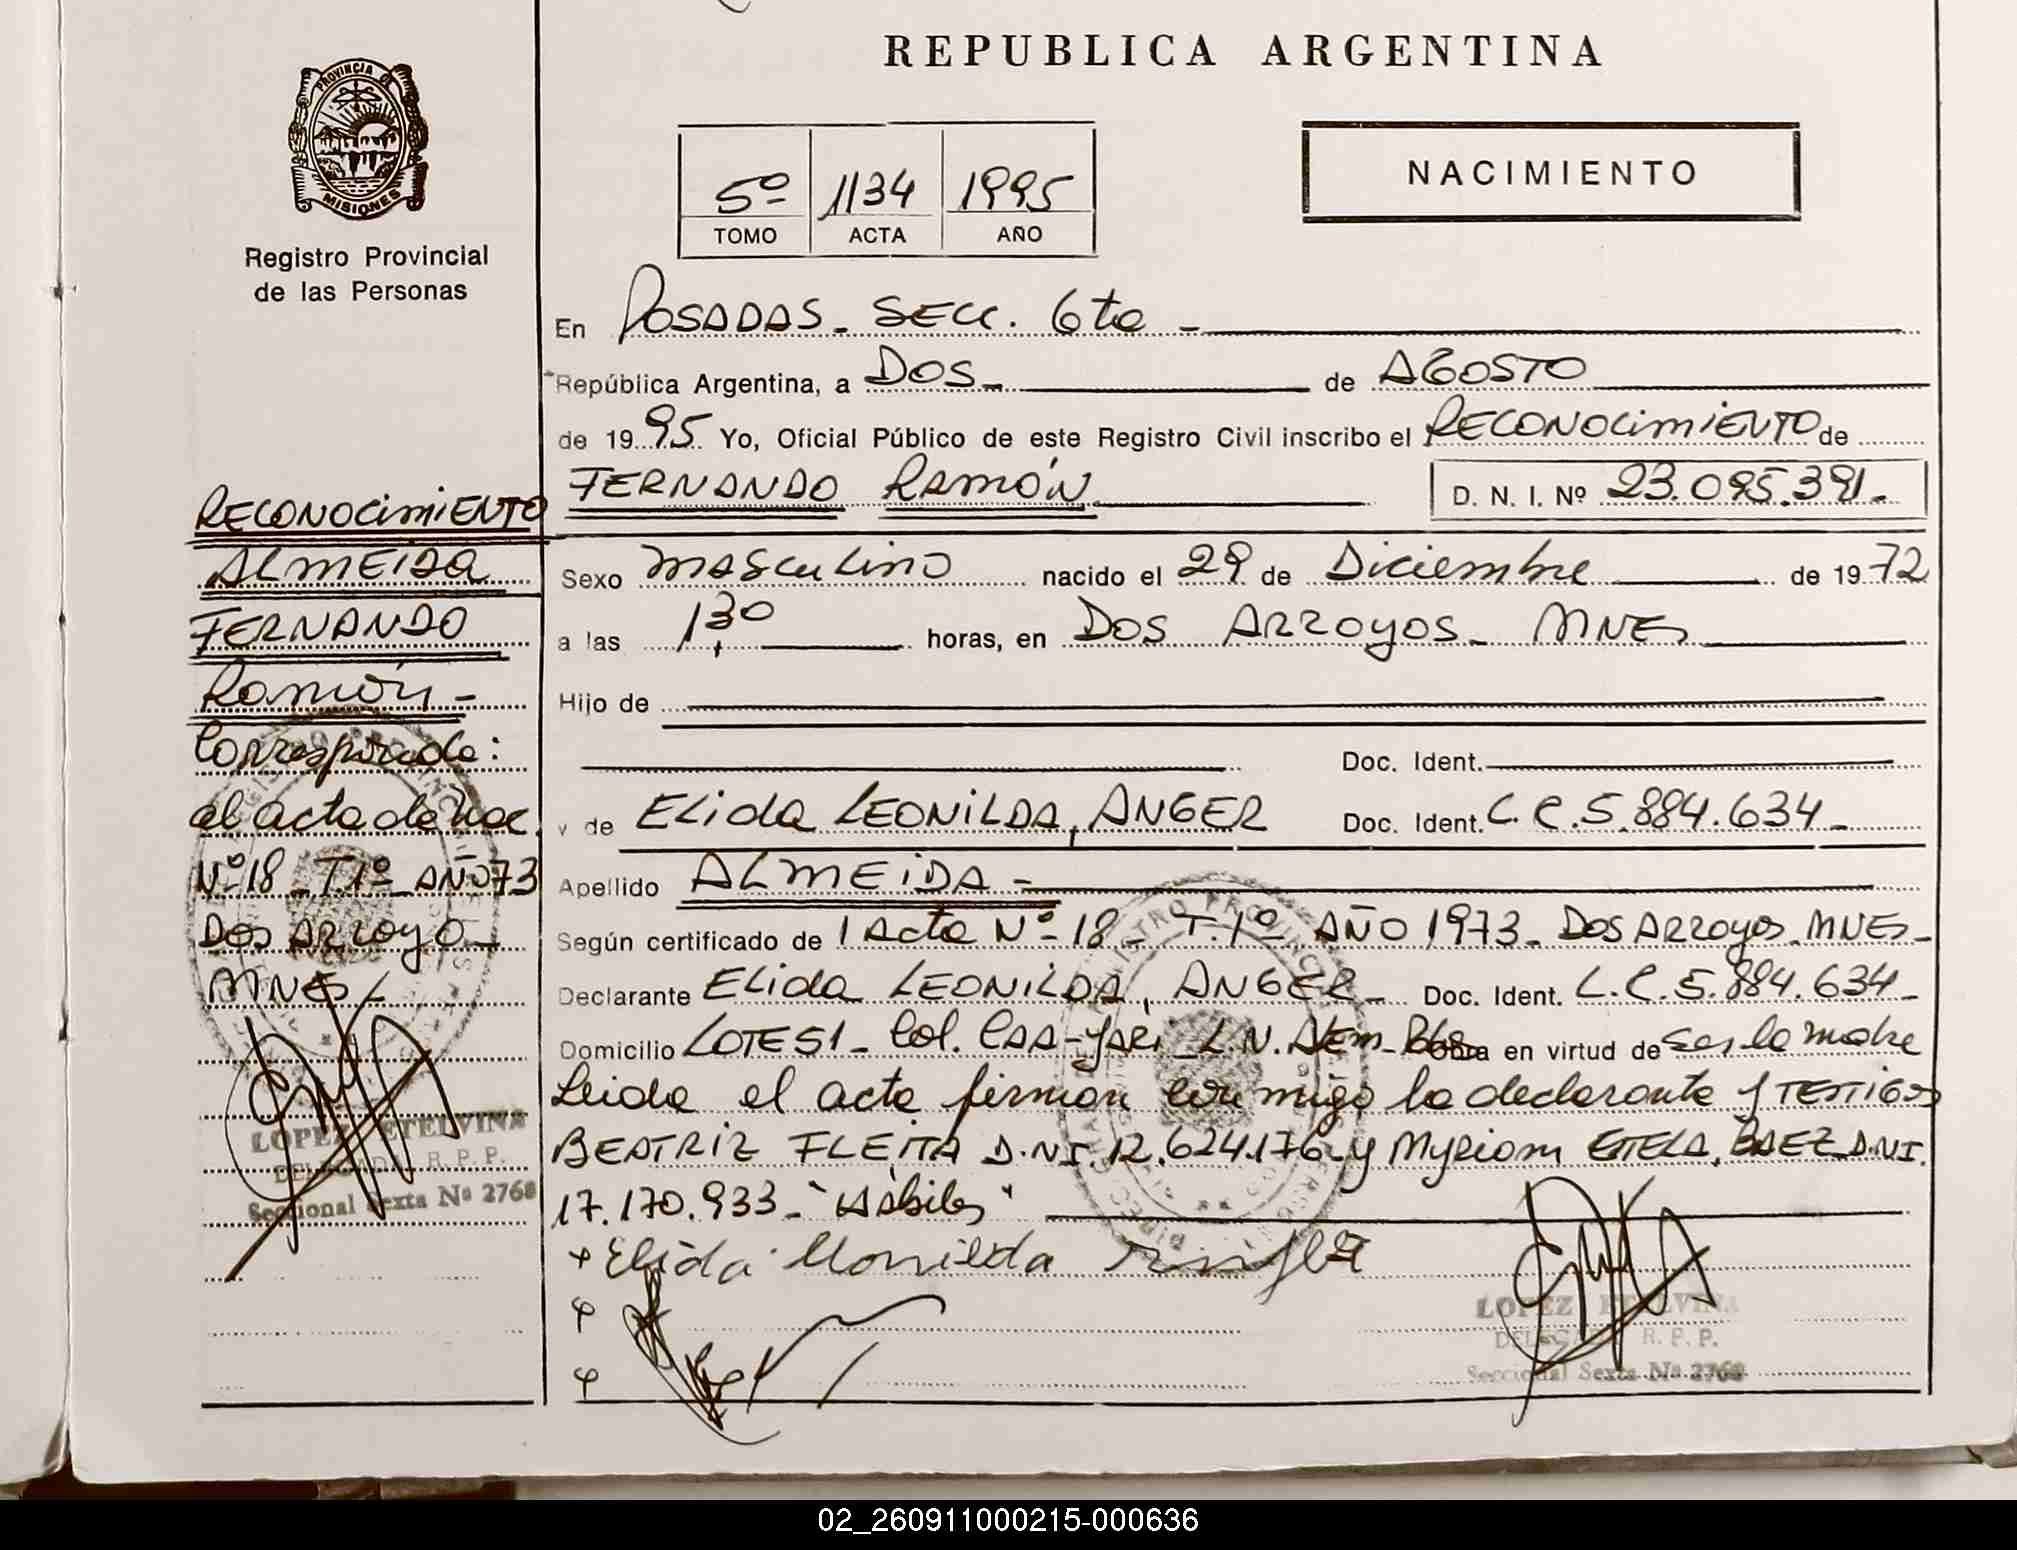 REPUBLICA ARGENTINA
PROVINCIA DE MISIONES
Registro Provincial
de las Personas
NACIMIENTO
5º 1134 1995
TOMO ACTA AÑO
En POSADAS - SECC. 6ta -
República Argentina, a DOS - de AGOSTO
de 1995 Yo, Oficial Público de este Registro Civil inscribo el RECONOCIMIENTO de
FERNANDO RAMÓN D. N. I. Nº 23.095.391.-
Sexo masculino nacido el 29 de Diciembre de 1972
a las 1,30 horas, en DOS ARROYOS - MNES
Hijo de
Doc. Ident.
y de ELIDA LEONILDA, ANGER Doc. Ident. L.C. 5.884.634 -
Apellido ALMEIDA -
Según certificado de 1 Acta Nº 18 - T. 1º AÑO 1973 - DOS ARROYOS - MNES -
Declarante ELIDA LEONILDA, ANGER - Doc. Ident. L.C. 5.884.634 -
Domicilio LOTE 51 - Col. CAA-YARI - L.N. Alem - Obra en virtud de ser la madre
Leida el acta firman conmigo la declarante y TESTIGOS
BEATRIZ FLEITA D.N.I. 12.624.176 - y Myriam ESTELA, BAEZ D.N.I.
17.170.933 - "Hábiles"
Elida
LOPEZ ETELVINA
DELEGADA R. P. P.
Seccional Sexta Nº 2768
RECONOCIMIENTO
ALMEIDA
FERNANDO
Ramón -
Corresponde:
al acta de Nac.
Nº 18 - T. 1º AÑO 73
DOS ARROYO -
MNES
LOPEZ ETELVINA
DELEGADA R. P. P.
Seccional Sexta Nº 2768
02_260911000215-000636